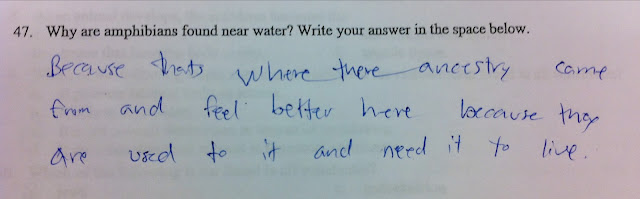 47. Why are amphibians found near water? Write your answer in the space below.
Because thats where there ancestry came
from and feel better here because they
are used to it and need it to live.